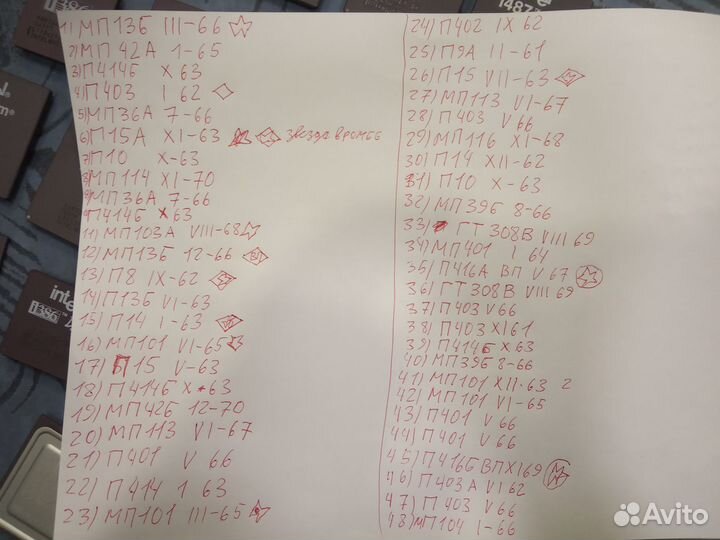 1) МП13Б III-66
2) МП 42А 1-65
3) П414Б X 63
4) П403 I 62
5) МП36А 7-66
6) П15А XI-63 звезда в ромбе
7) П10 X-63
8) МП114 XI-70
9) МП36А 7-66
П414Б X 63
11) МП103А VIII-68
12) МП13Б 12-66
13) П8 IX-62
14) П13Б VI-63
15) П14 I-63
16) МП101 VI-65
17) П15 V-63
18) П414Б X-63
19) МП42Б 12-70
20) МП113 VI-67
21) П401 V 66
22) П414 1 63
23) МП101 III-65
24) П402 IX 62
25) П9А II-61
26) П15 VII-63
27) МП113 VI-67
28) П403 V 66
29) МП116 XI-68
30) П14 XII-62
31) П10 X-63
32) МП39Б 8-66
33) ГТ308В VIII 69
34) МП401 I 64
35) П416А ВП V 67
36) ГТ308В VIII 69
37) П403 V 66
38) П403 XI 61
39) П414Б X 63
40) МП39Б 8-66
41) МП101 XII-63 2
42) МП101 VI-65
43) П401 V 66
44) П401 V 66
45) П416Б ВП XI 69
46) П403А VI 62
47) П403 V 66
48) МП104 I-66
intel
i386
1487
Avito